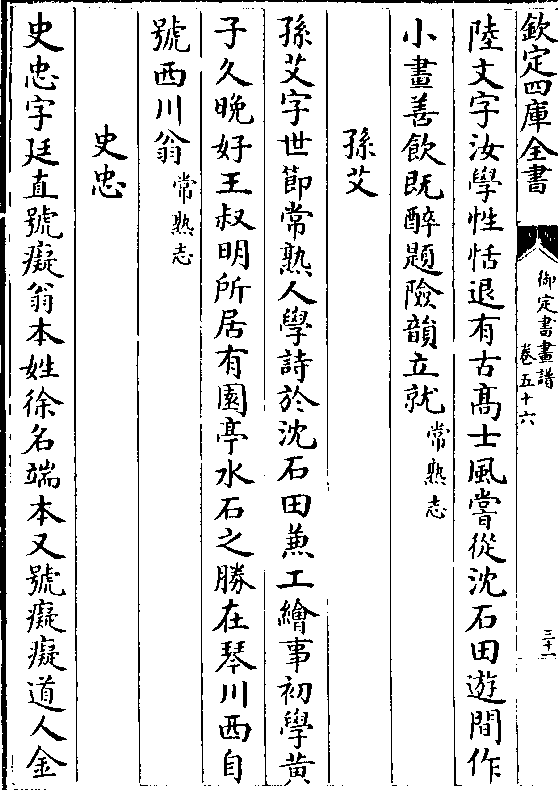 欽定四庫全書
御定書畫譜
卷五十六
三十一
陸文字汝學性恬退有古髙士風嘗從沈石田遊間作
小畫善飲既醉題險韻立就常熟志
孫艾
孫艾字世節常熟人學詩於沈石田兼工繪事初學黄
子久晚好王叔明所居有園亭水石之勝在琴川西自
號西川翁常熟志
史忠
史忠字廷直號癡翁本姓徐名端本又號癡癡道人金